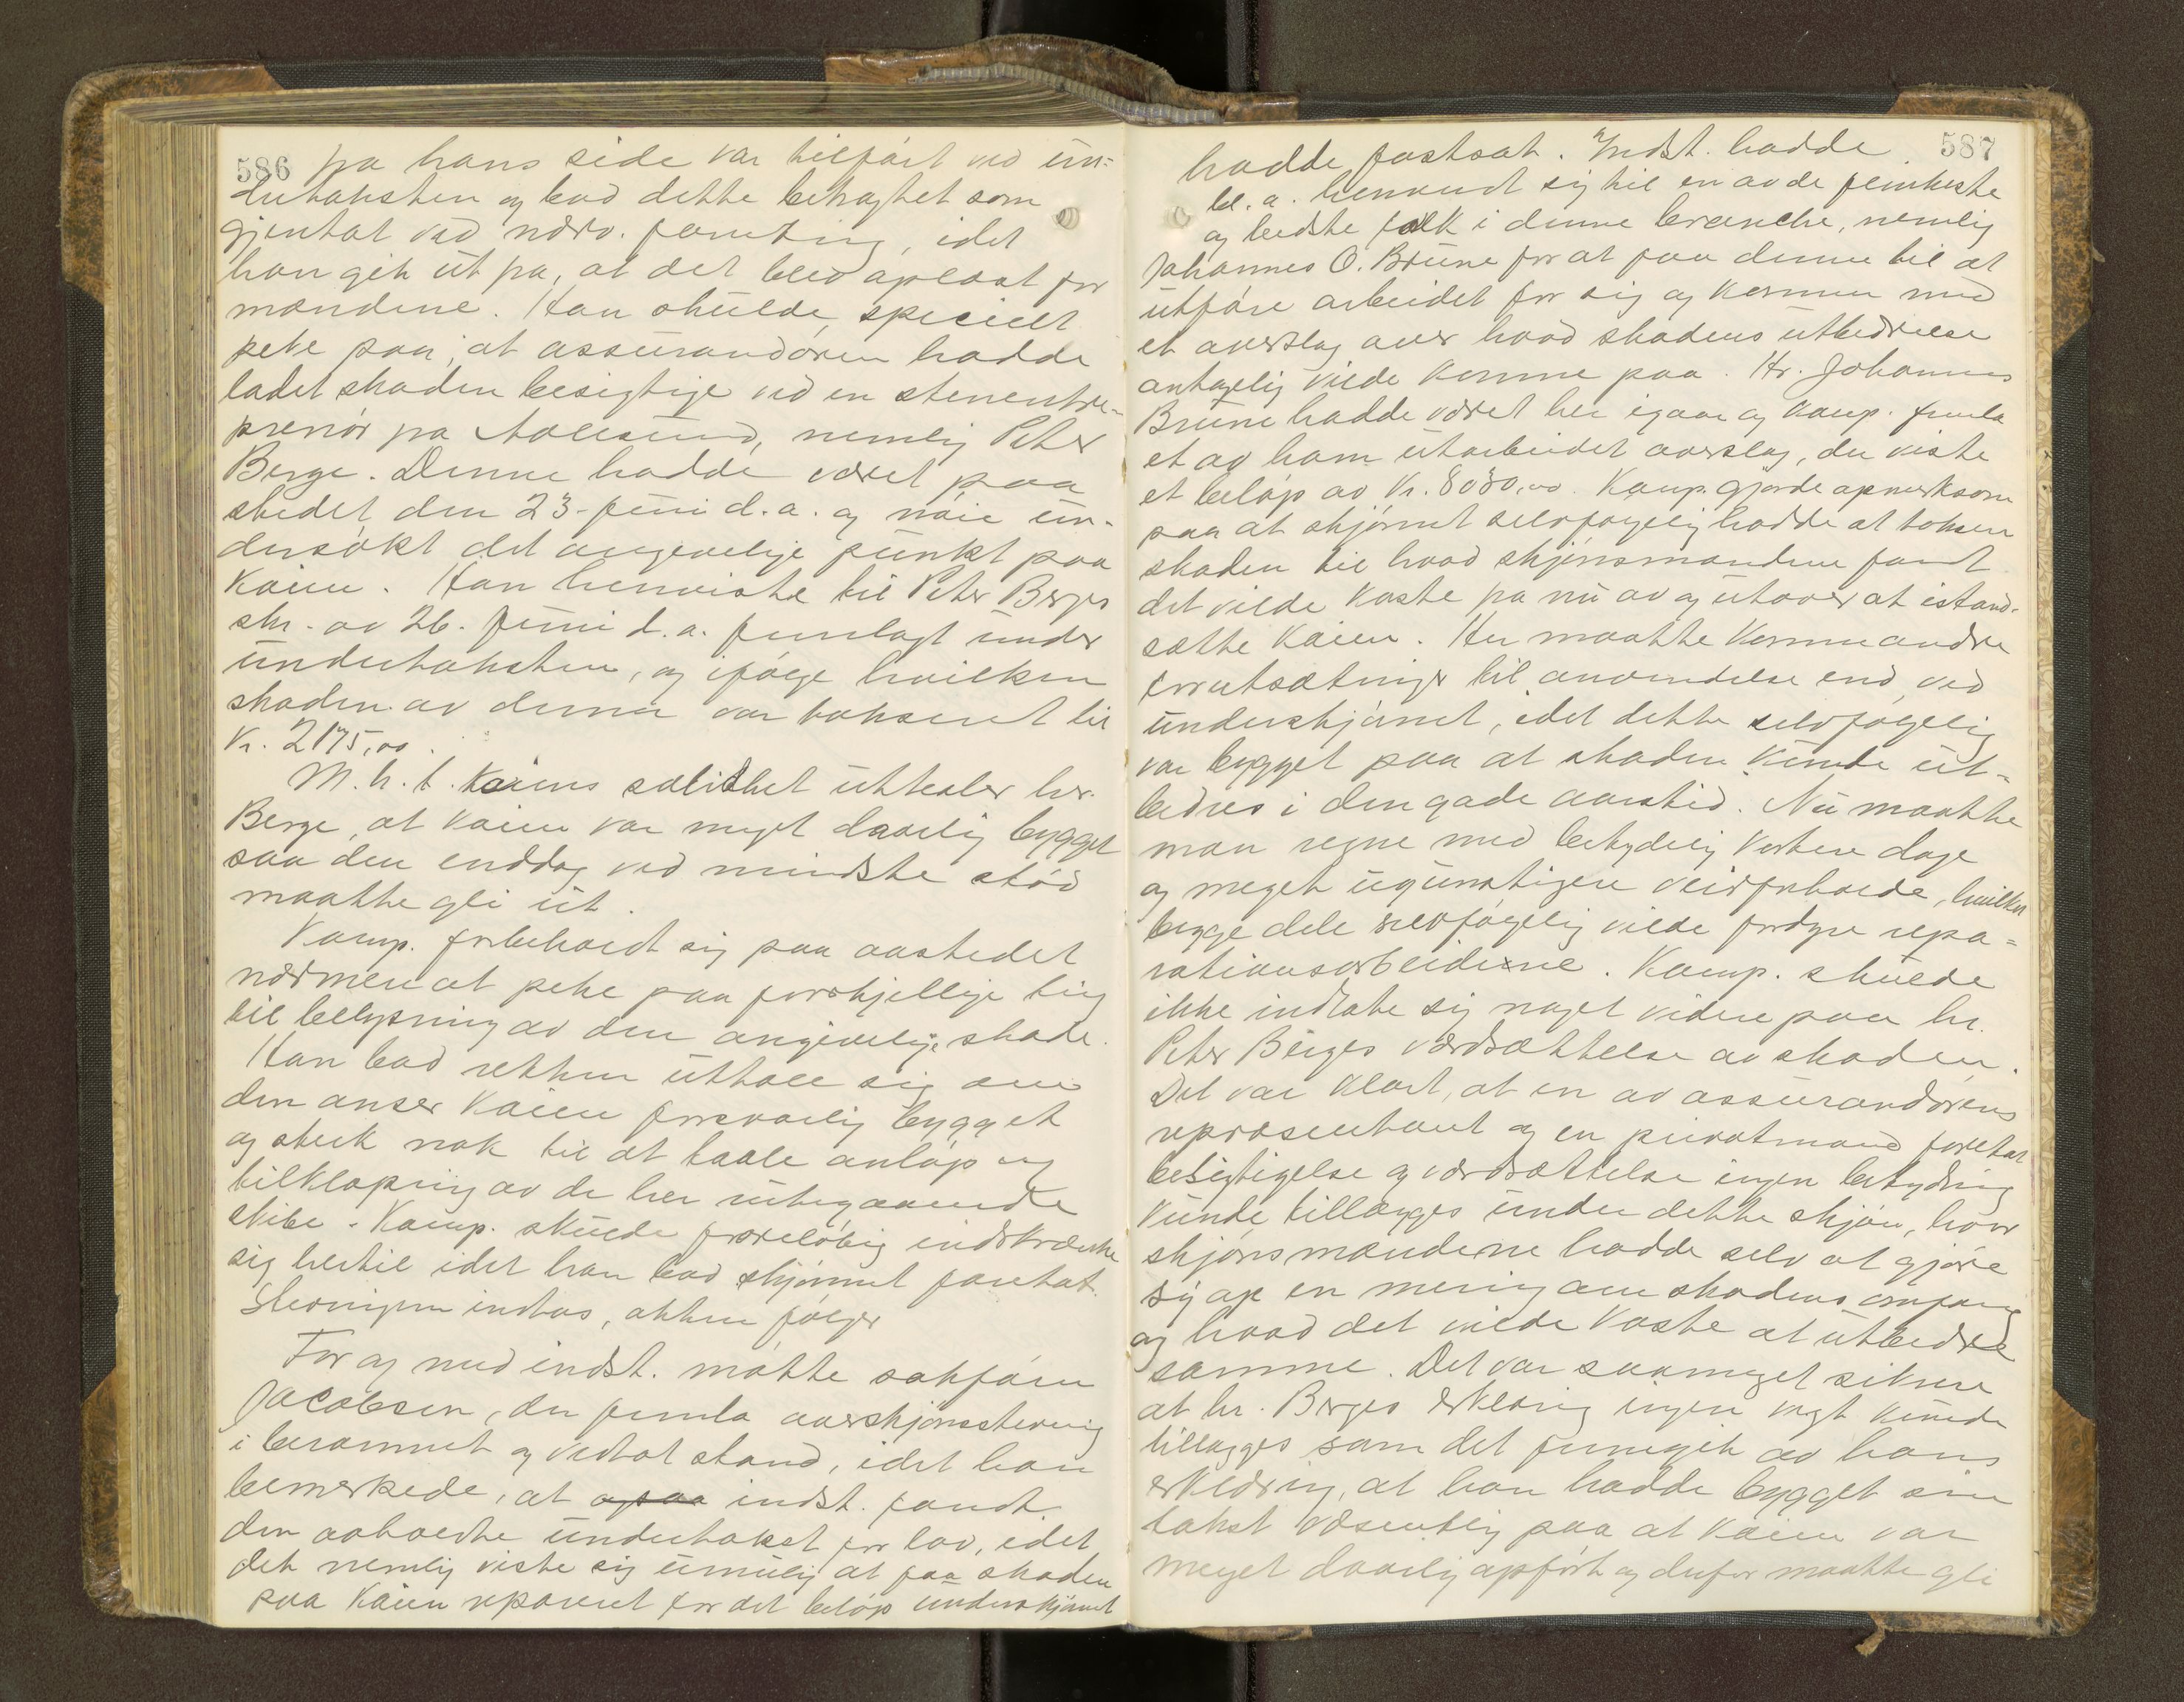 586 fra hans side var tilført ved un-
dertaksten og bad dette betragtet som
gjentat ved nærv. forretning, idet
han gik ut fra, at det blev oplæst for
mændene. Han skulde specielt
peke paa, at assurandøren hadde
ladet skaden besigtige ved en stenentre-
prenør fra Aalesund, nemlig Peter
Berge. Denne hadde været paa
stedet den 23. juni d.a. og nøie un-
dersøkt det angivelige punkt paa
kaien. Han henviste til Peter Berges
skr. av 26. juni d.a. fremlagt under
undertaksten, og ifølge hvilken
skaden av denne var taksert til
Kr. 2175,00.
M.h.t. kaiens soliditet uttaler hr.
Berge, at kaien var meget daarlig bygget
saa den enddog ved mindste stød
maatte gli ut.
Komp. forbeholdt sig paa aastedet
nærmere at peke paa forskjellige ting
til belysning av den angivelige skade.
Han bad retten uttale sig om
den anser kaien forsvarlig bygget
og sterk nok til at taale anløp og
tilklapning av de her utegaaende
skibe. Komp. skulde foreløbig indskrænke
sig hertil idet han bad skjønnet foretat.
Stevningen indtas, akten følger
For og med indst. møtte sakfører
Jacobsen, der fremla overskjønsstevning
i berammet og vedtat stand, idet han
bemerkede, at indst. fandt
den avholdte undertakst for lav, idet
det nemlig viste sig umulig at faa skaden
paa kaien reparert for det beløp underskjønnet
587
hadde fastsat. Indst. hadde
bl.a. henvendt sig til en av de flinkeste
og bedste folk i denne branche, nemlig
Johannes O. Brune for at faa denne til at
utføre arbeidet for sig og komme med
et overslag over hvad skadens utbedrelse
antagelig vilde komme paa. Hr. Johannes
Brune hadde været her igaar og komp. fremla
et av ham utarbeidet overslag, der viste
et beløp av Kr. 8030,00. Komp. gjorde opmerksom
paa at skjønnet selvfølgelig hadde at taksere
skaden til hvad skjønsmændene fandt
det vilde koste fra nu av og utover at istand-
sætte kaien. Her maatte komme andre
forutsætninger til anvendelse end ved
underskjønnet, idet dette selvfølgelig
var bygget paa at skaden kunde ut-
bedres i den gode aarstid. Nu maatte
man regne med betydelig kortere dage
og meget ugunstigere veirforholde, hvilket
begge dele selvfølgelig vilde fordyre repa-
rationsarbeiderne. Komp. skulde
ikke indlate sig noget videre paa hr.
Peter Berges værdsættelse av skaden.
Det var klart, at en av assurandørens
repræsentant og en privatmand foretat
besigtigelse og værdsættelse ingen betydning
kunde tillægges under dette skjøn, hvor
skjønsmændene hadde selv at gjøre
sig op en mening om skadens omfang
og hvad det vilde koste at utbedre
samme. Det var saameget sikrere
at hr. Berges erklæring ingen vegt kunde
tillægges som det fremgik av hans
erklæring, at han hadde bygget sin
takst væsentlig paa at kaien var
meget daarlig opført og derfor maatte gli